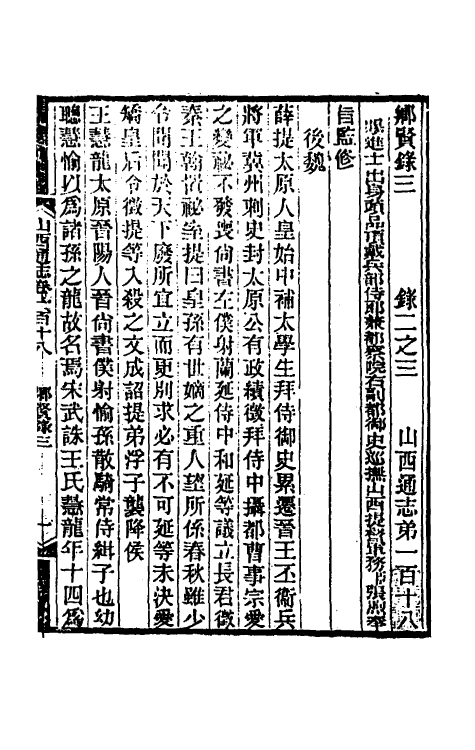 鄉賢錄三　錄二之三　山西通志第一百十八
賜進士出身頭品頂戴兵部侍郎兼都察院右副都御史巡撫山西提督軍務張煦奉
旨監修
後魏
薛提太原人皇始中補太學生拜侍御史累遷晉王丕衞兵
將軍冀州刺史封太原公有政績徵拜侍中攝都曹事宗愛
之變祕不發喪尙書左僕射蘭延侍中和延等議立長君徵
秦王翰置祕室提曰皇孫有世嫡之重人望所係春秋雖少
令聞聞於天下廢所宜立而更別求必有不可延等未決愛
矯皇后令徵提等入殺之文成詔提弟浮子襲降侯
王慧龍太原晉陽人晉尙書僕射愉孫散騎常侍緝子也幼
聰慧愉以爲諸孫之龍故名焉宋武誅王氏慧龍年十四爲
山西通志卷一百十八　鄉賢錄三　一